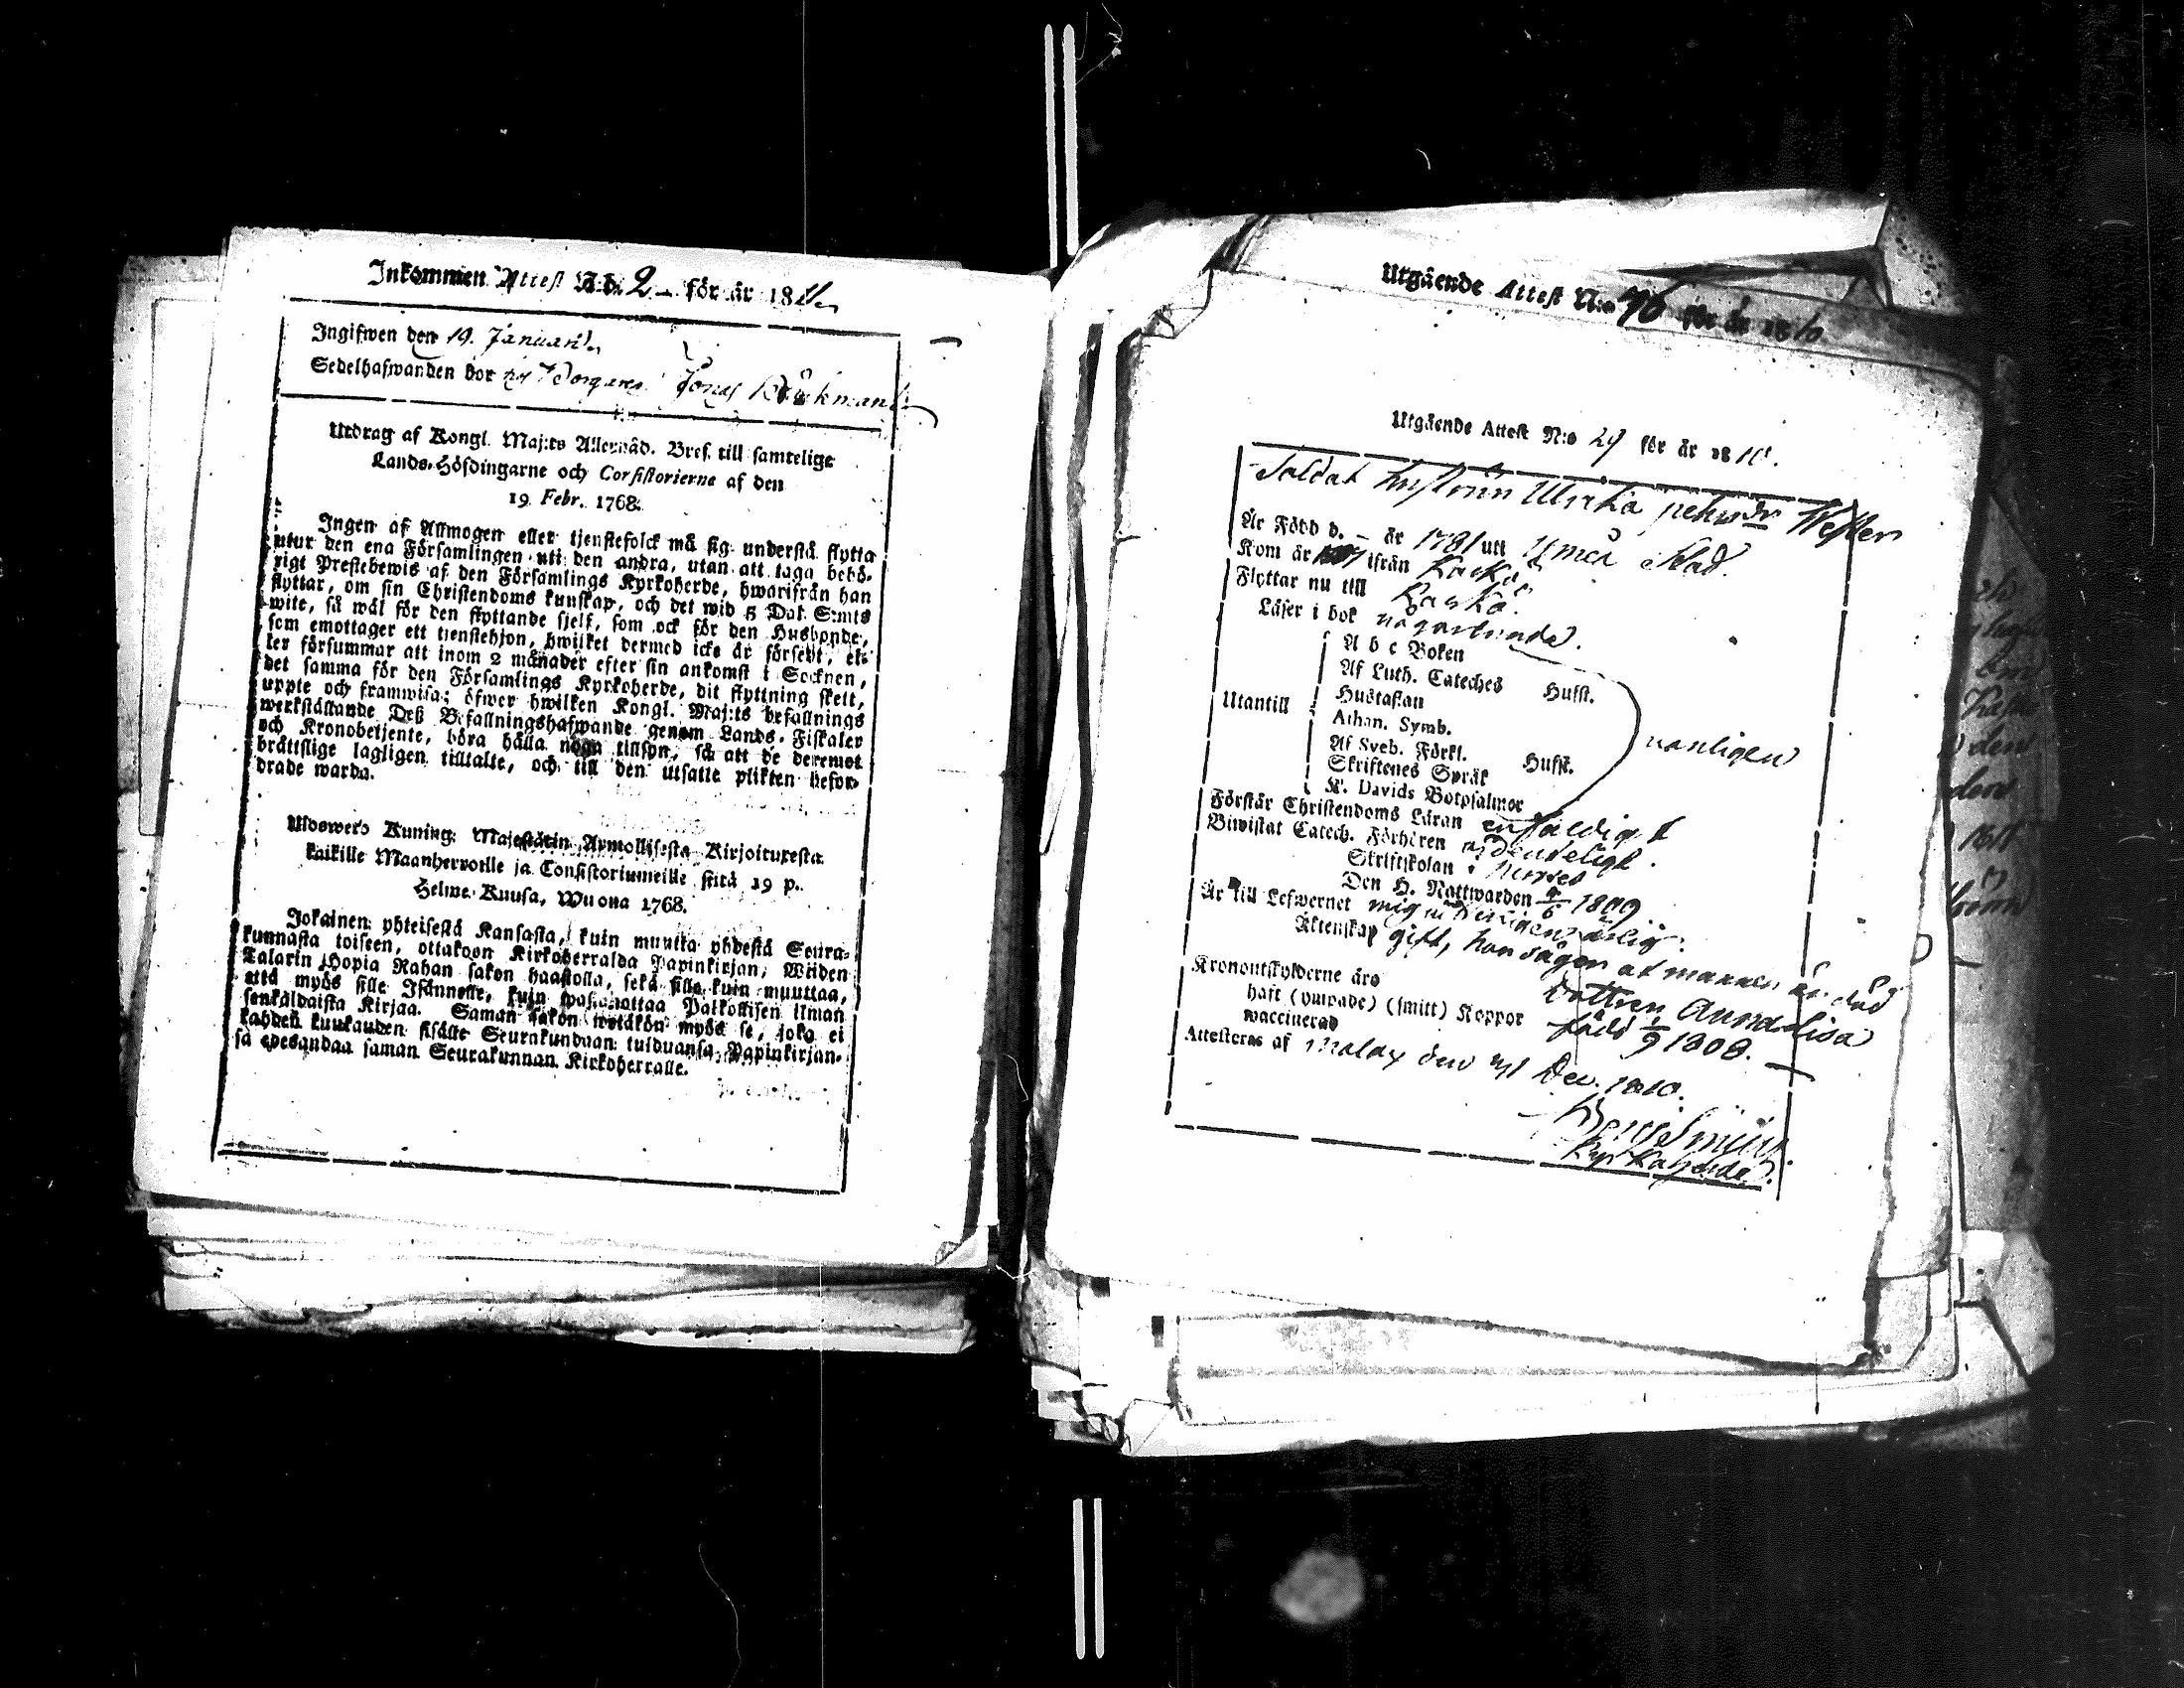 Inkommen Attest N:o 2 för år 1811
Ingifwen den 19. Januarii
Sedelhafwanden bor hos Borgaren Jonas
Utdrag af Kongl. Maj:ts Allernåd. Bref. till samtelige
Lands-Höfdingarne och Consistorierne af den
19 Febr. 1768.
Ingen af Allmogen eller tjenstefolck må sig understå flytta
utur den ena Församlingen uti den andra, utan att taga behö-
rigt Prestebewis af den Församlings Kyrkoherde, hwarifrån han
flyttar, om sin Christendoms kunskap, och det wid 5 Dal. S:mts
wite, så wäl för den flyttande sjelf, som ock för den Husbonde,
som emottager ett tienstehjon, hwilket dermed icke är försedt, el-
ler försummar att inom 2 månader efter sin ankomst i Socknen,
det samma för den Församlings Kyrkoherde, dit flyttning skett,
uppte och framwisa; öfwer hwilken Kongl. Maj:ts befallnings
werkställande Deß Befallningshafwande genom Lands-Fiskaler
och Kronobetjente, böra hålla noga tillsyn, så att de deremot
bråttslige lagligen tilltalte, och till den utsatte plikten befor-
drade warda.
Uloswedo Kuning: Majestätin Armollisesta Kirjoituxesta
kaikille Maanherroille ja Consistoriumeille, sitä 19 p.
Helme-Kuusa, Wuonna 1768.
Jokainen yhteisestä Kansasta, kuin muutta yhdestä Seura-
kunnasta toiseen, ottakoon Kirkoherralda Papinkirjan, Wiiden
Talarin Hopia Rahan sakon haastolla, sekä sille kuin muuttaa,
että myös sille Isännelle, kuin wastanottaa Palkollisen ilman
senkaldaista Kirjaa. Saman sakon wetäkön myös se, joka ei
kahden kuukauden sisälle Seurakundaan tulduansa, Papinkirjan-
sa edesandaa saman Seurakunnan Kirkoherralle.
Utgående Attest N:o 76 för år 1810
Utgående Attest N:o 29 för år 1810.
Soldat hustrun Ulrika pehrsdr Wester
Är Född d. – år 1781 utt Umeå stad.
Kom år ifrån Kaskö
Flyttar nu till Kaskö.
Läser i bok någorlunda.
Utantill
A b c Boken
Af Luth. Cateches Hufst.
Hustaflan
Athan. Symb.
Af Sveb. Förkl. Hufst.
Skriftenes Språk
K. Davids Botpsalmer
vanligen
Förstår Christendoms Läran enfaldigt
Biwistat Catech. Förhören ordenteligt.
Skriftskolan
Den H. Nattwarden 4/6 1809.
Är till Lefwernet mig weterligen ärlig.
Äktenskap gift, hon säger at mannen är död
Kronoutskylderne äro Dottren Anna Lisa
haft (ympade) (smitt) Koppor född 1/9 1808.
waccinerad
Attesteras af Malax den 31 Dec. 1810.